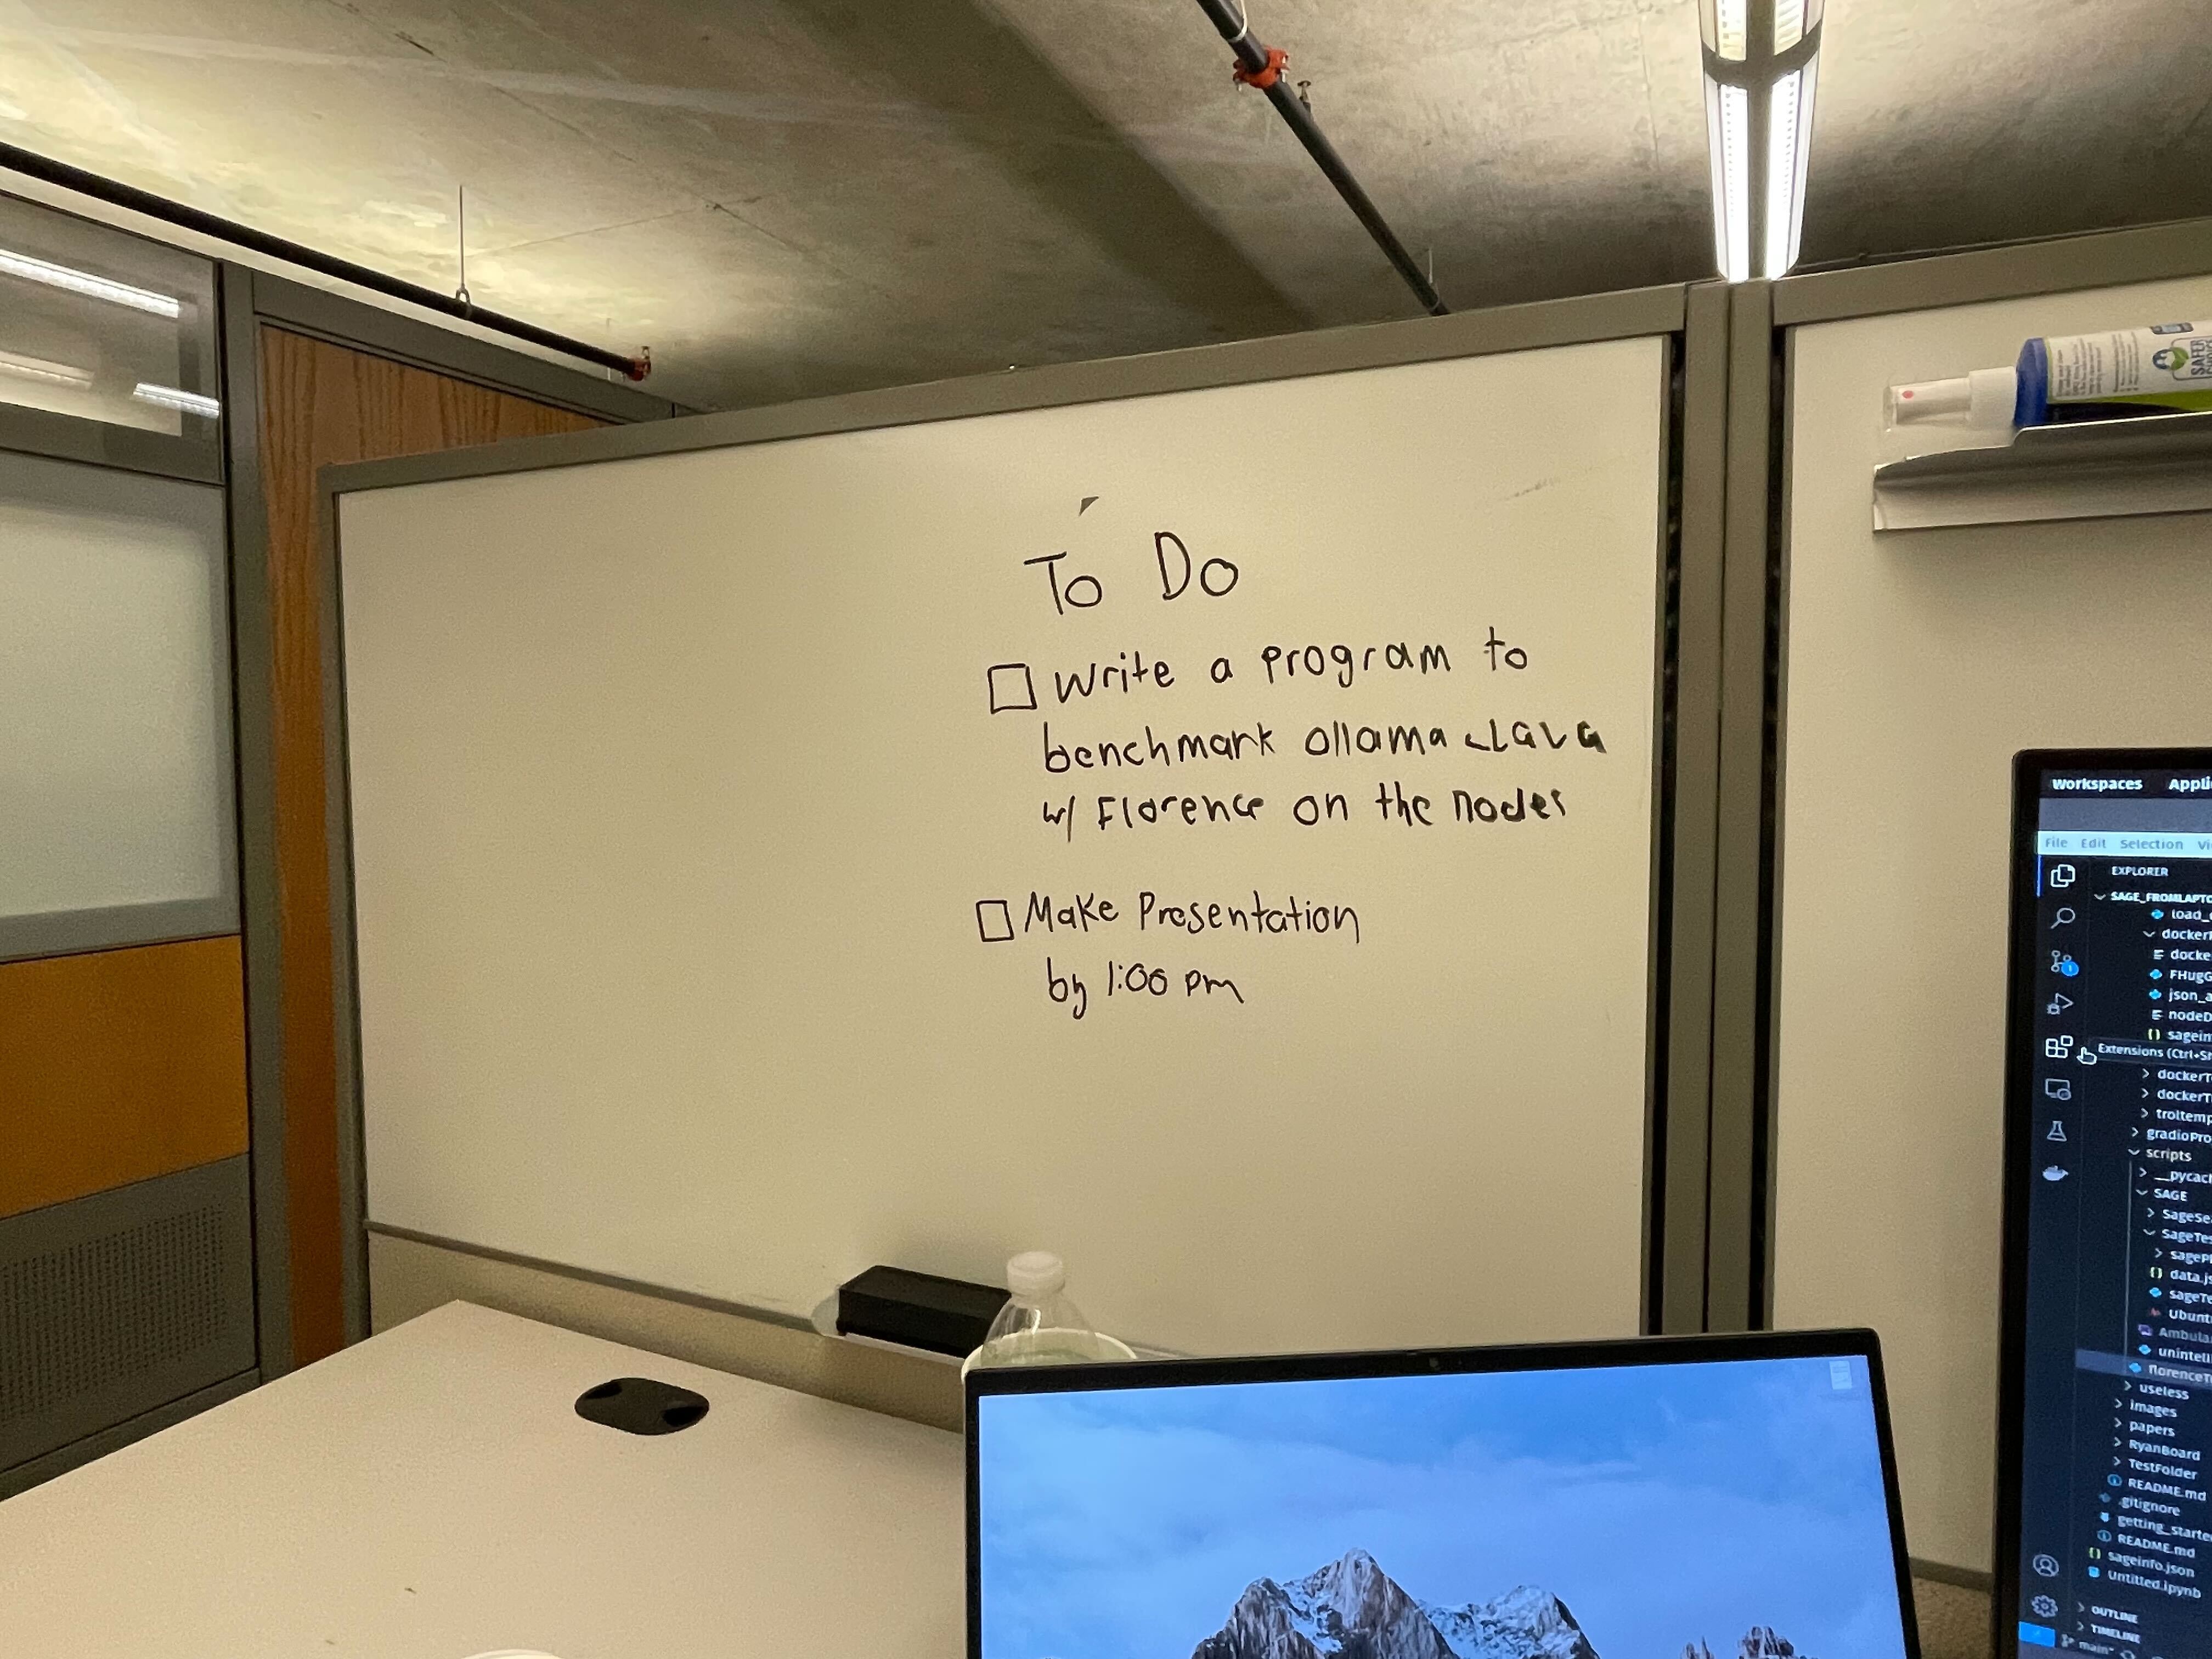 To Do
Write a program to
benchmark ollama LLava
w/ Florence on the nodes
Make Presentation
by 1:00 pm
SAFER
Workspaces
File Edit Selection
EXPLORER
SAGE_FROMLAPTO
load_
docker
docke
FHugG
json_a
nodeD
sagein
Extensions (Ctrl+S
dockerT
dockerT
troltemp
gradioPro
scripts
__pycach
SAGE
SageSe
SageTes
sageP
data.js
sageTe
Ubunt
Ambula
unintell
florenceT
useless
images
papers
RyanBoard
TestFolder
README.md
.gitignore
getting_starte
README.md
sageinfo.json
Untitled.ipynb
OUTLINE
TIMELINE
main*